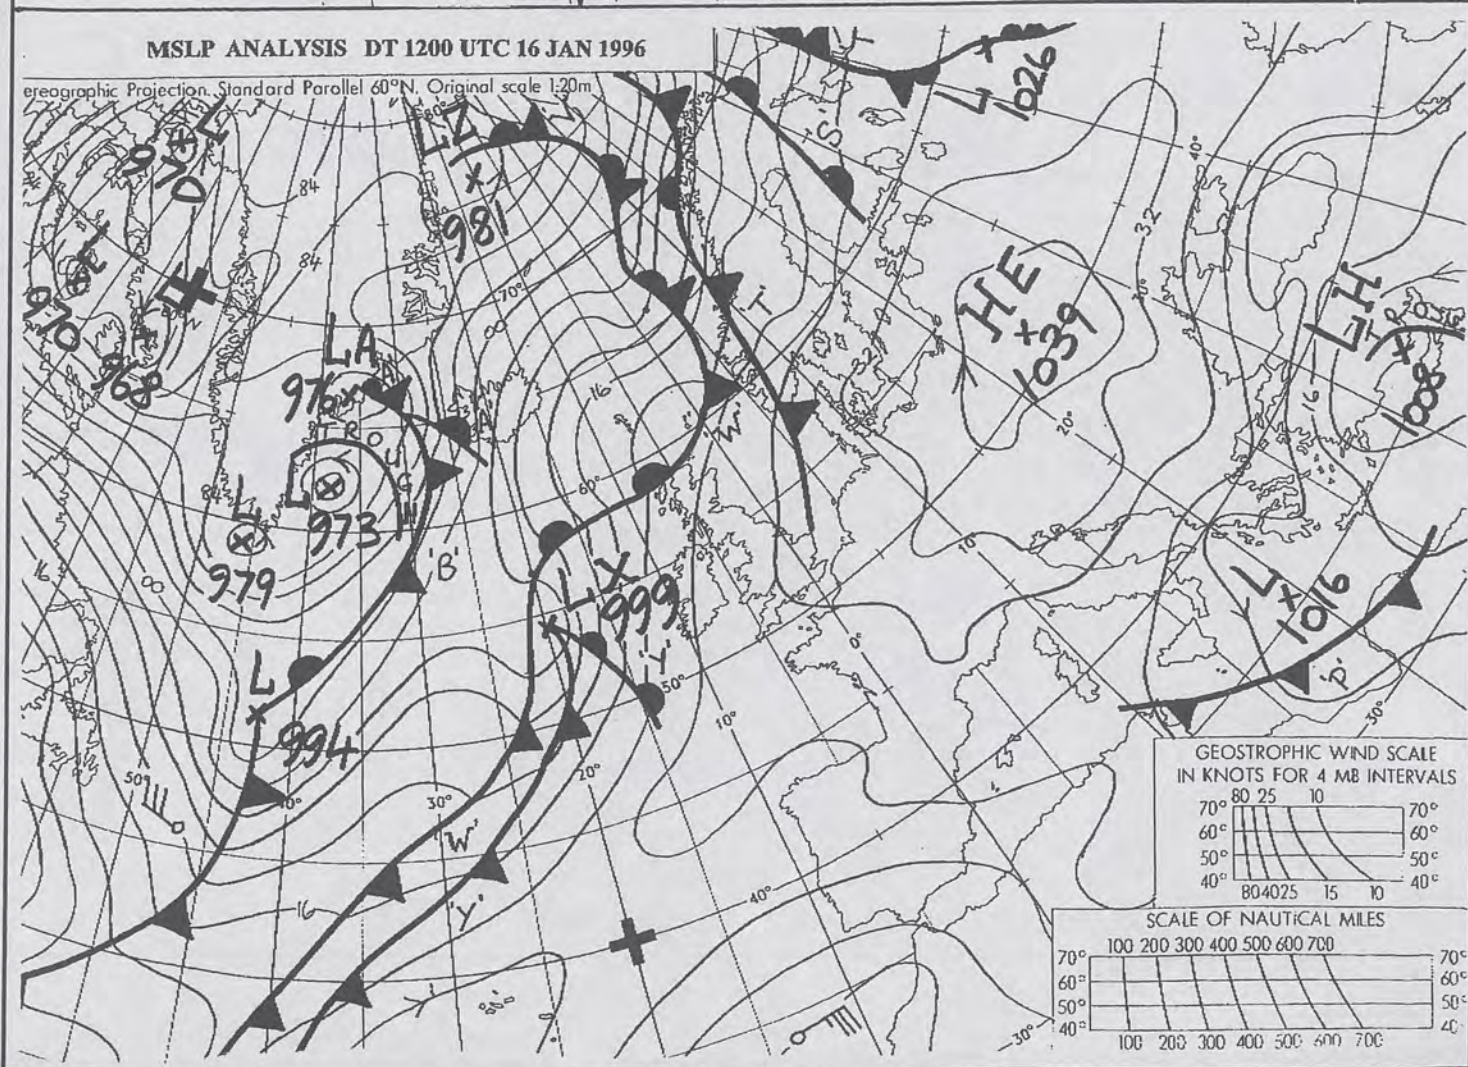 MSLP ANALYSIS DT 1200 UTC 16 JAN 1996
ereographic Projection. Standard Parallel 60°N. Original scale 1:20m
L
1026
'S'
40°
L
970
80°
LZ
84
981
32
970
L
968
84
70°
'T'
HE
1039
30°
LH
TROUGH
1008
16
LA
976
00
16
'A'
'W'
20°
TROUGH
L
973
84
L
979
60°
'B'
16
00
10°
LX
999
0°
L
1016
'P'
30°
'Y'
50°
L
994
10°
50°
40°
30°
20°
'W'
16
'Y'
40°
30°
GEOSTROPHIC WIND SCALE
IN KNOTS FOR 4 MB INTERVALS
80 25 10
70° 70°
60° 60°
50° 50°
40° 40°
80 40 25 15 10
SCALE OF NAUTICAL MILES
100 200 300 400 500 600 700
70° 70°
60° 60°
50° 50°
40° 40
100 200 300 400 500 600 700